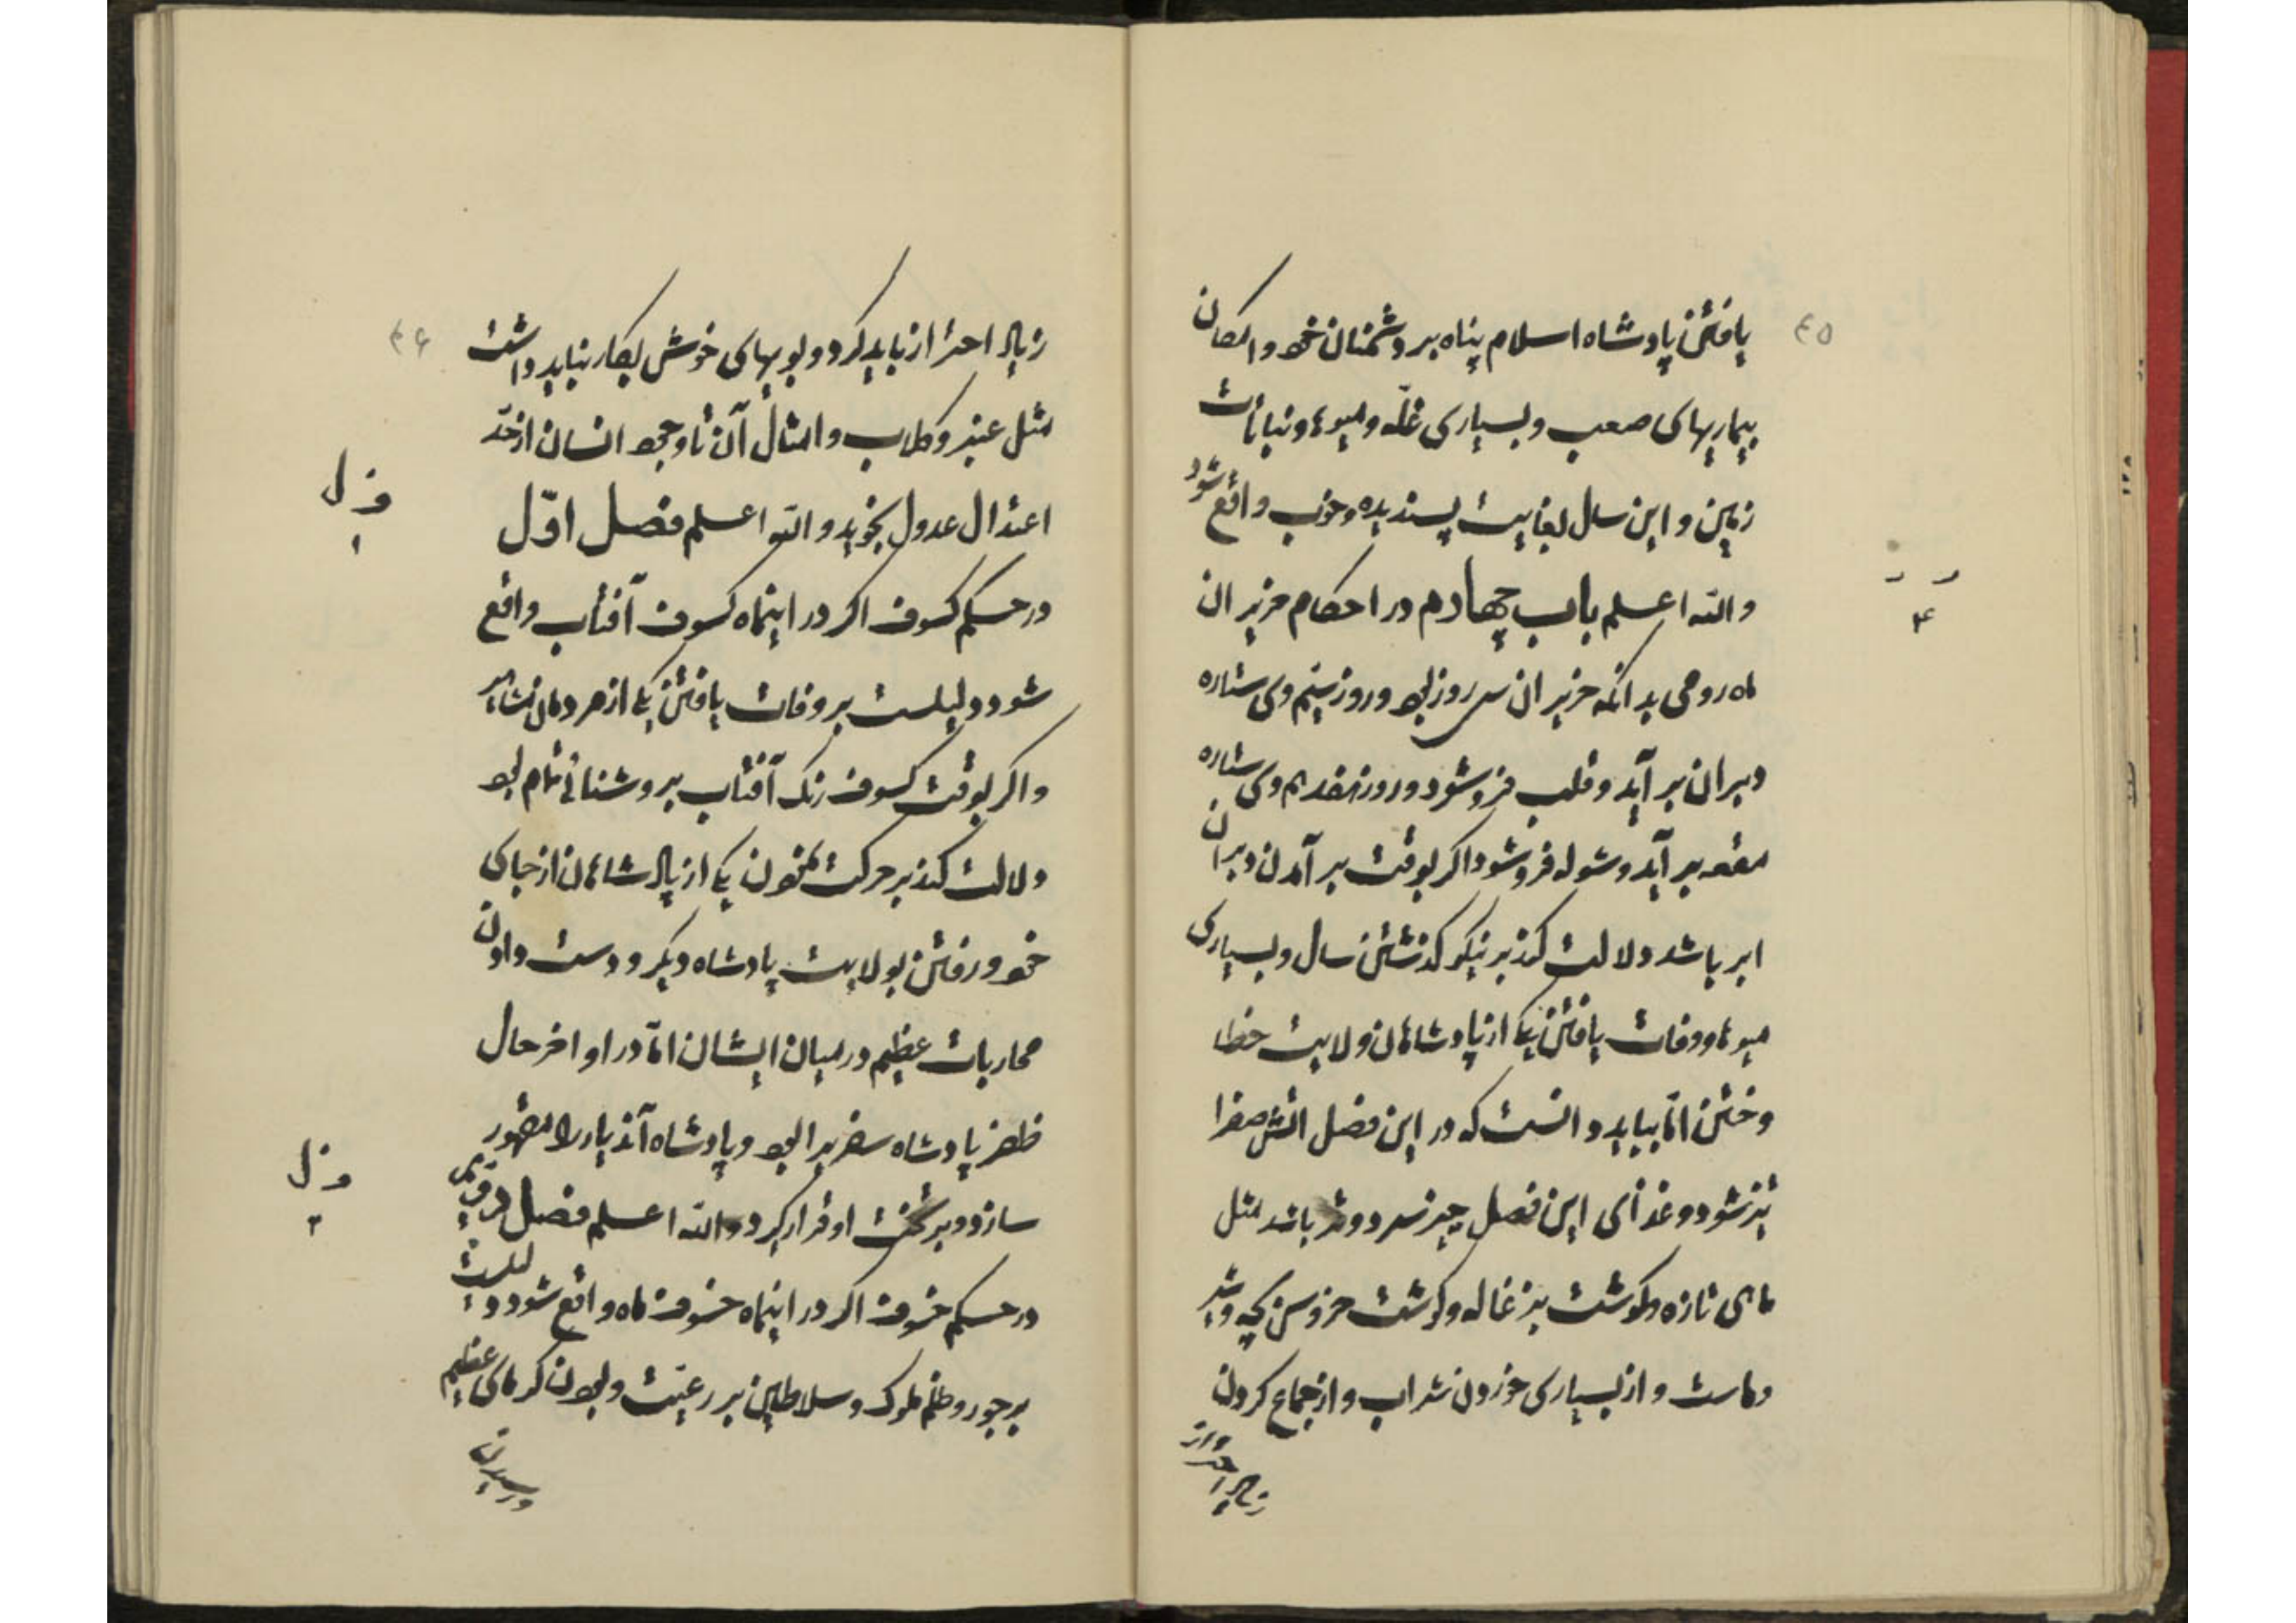 ۴۵
یافتن پادشاه اسلام پناه بر دشمنان خود و امکان
بیماریهای صعب و بسیاری غلّه و میوها و نباتات
زمین و این سال بغایت پسندیده و خوب واقع شود
والله اعلم باب چهارم در احکام حزیران
ماه رومی بدانکه حزیران سی روز بود و روز پنجم وی ستاره
دبران بر آید و قلب فرو شود و روز هفدهم وی ستاره
هقعه بر آید و شوله فرو شود اگر بوقت بر آمدن دبران
ابر باشد دلالت کند بر نیکو گذشتن سال و بسیاری
میوها و وفات یافتن یکی از پادشاهان ولایت خطا
و ختن امّا بباید دانست که در این فصل اتش صفرا
تیز شود و غذای این فصل چیز سرد و تر باشد مثل
ماهی تازه و گوشت بزغاله و گوشت خروس بچه و شیر
و ماست و از بسیاری خوردن شراب و از جماع کردن
زیاد احتراز
۴
۴۶
زیاد احتراز باید کرد و بویهای خوش بکار نباید داشت
مثل عنبر و گلاب و امثال آن تا وجود انسان از حدّ
اعتدال عدول نجوید والله اعلم فصل اوّل
در حکم کسوف اگر در اینماه کسوف آفتاب واقع
شود دلیلست بر وفات یافتن یکی از مردمان مشاهیر
و اگر بوقت کسوف رنگ آفتاب بروشنائی تمام بود
دلالت کند بر حرکت نمودن یکی از پادشاهان از جای
خود و رفتن بولایت پادشاه دیگر و دست دادن
محاربات عظیم در میان ایشان امّا در اواخر حال
ظفر پادشاه سفر پیرا بود و پادشاه آندیار را مقهور
سازد و بر تخت او قرار گیرد والله اعلم فصل دوّیمی
در حکم خسوف اگر در اینماه خسوف ماه واقع شود دلیلست
بر جور و ظلم ملوک و سلاطین بر رعیّت و بودن گرمای عظیم
و رسیدن
ف ل
۱
ف ل
۲